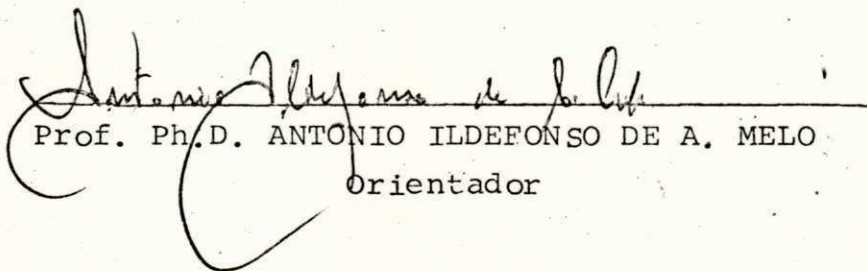 Antonio Ildefonso de
Prof. Ph.D. ANTONIO ILDEFONSO DE A. MELO
Orientador